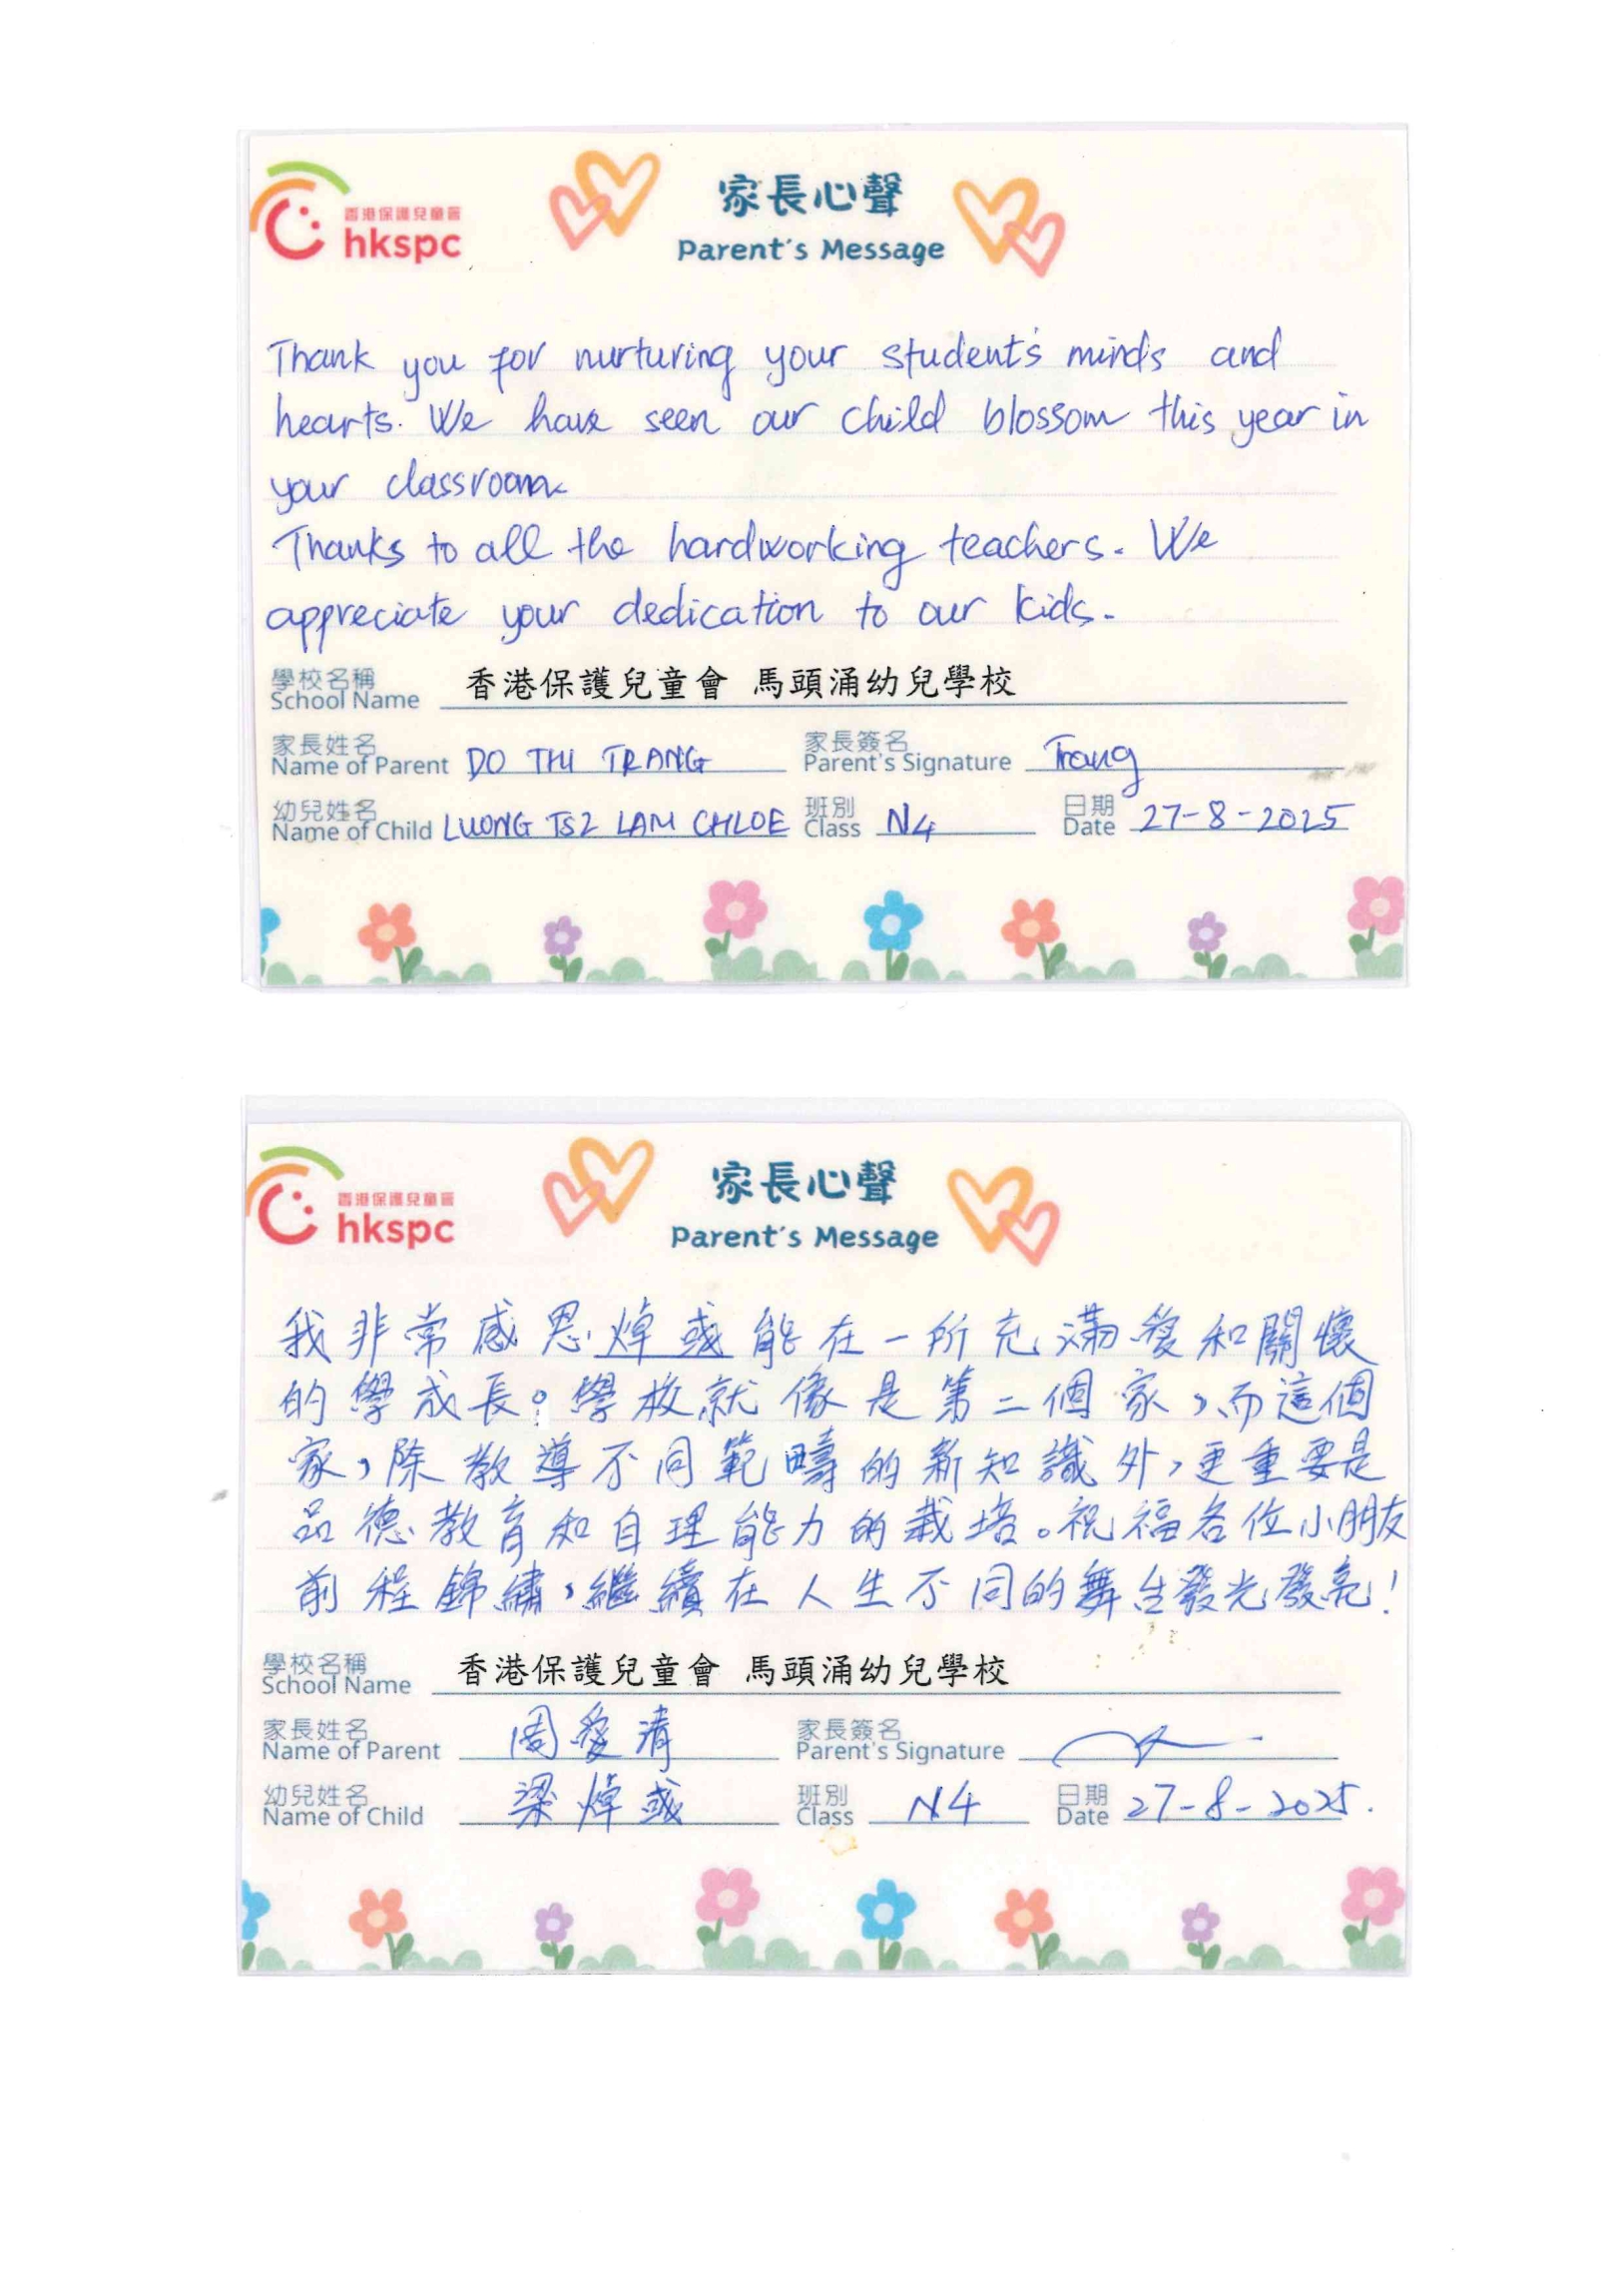 香港保護兒童會
hkspc
家長心聲
Parent's Message
Thank you for nurturing your student's minds and
hearts. We have seen our child blossom this year in
your classroom
Thanks to all the hardworking teachers. We
appreciate your dedication to our kids.
學校名稱
School Name 香港保護兒童會 馬頭涌幼兒學校
家長姓名 家長簽名
Name of Parent DO THI TRANG Parent's Signature Trang
幼兒姓名 班別 日期
Name of Child LUONG TSZ LAM CHLOE Class N4 Date 27-8-2025
香港保護兒童會
hkspc
家長心聲
Parent's Message
我非常感恩焯彧能在一所充滿愛和關懷
的學成長。學校就像是第二個家，而這個
家，除教導不同範疇的新知識外，更重要是
品德教育和自理能力的栽培。祝福各位小朋友
前程錦繡，繼續在人生不同的舞台發光發亮！
學校名稱
School Name 香港保護兒童會 馬頭涌幼兒學校
家長姓名 家長簽名
Name of Parent 周愛清 Parent's Signature
幼兒姓名 班別 日期
Name of Child 梁焯彧 Class N4 Date 27-8-2025.